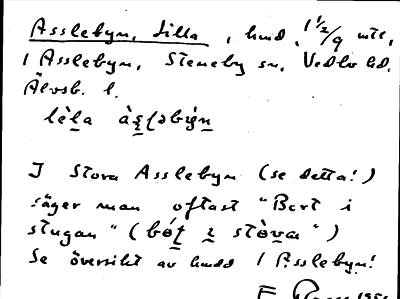 Asslebyn, Lilla, hmd, 1 1/2/9 mtl,
i Asslebyn, Steneby sn, Vedbo hd.
Älvsb. l.
lèla àșləbýn
I Stora Asslebyn (se detta!)
säger man oftast "Bort i
stugan" (bót i stòva")
Se översikt av hmd i Asslebyn!